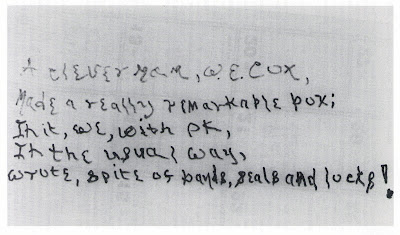 A clever man, W. E. Cox,
Made a really remarkable box;
In it, we, with PK,
In the usual way,
wrote, spite of bands, seals and locks!